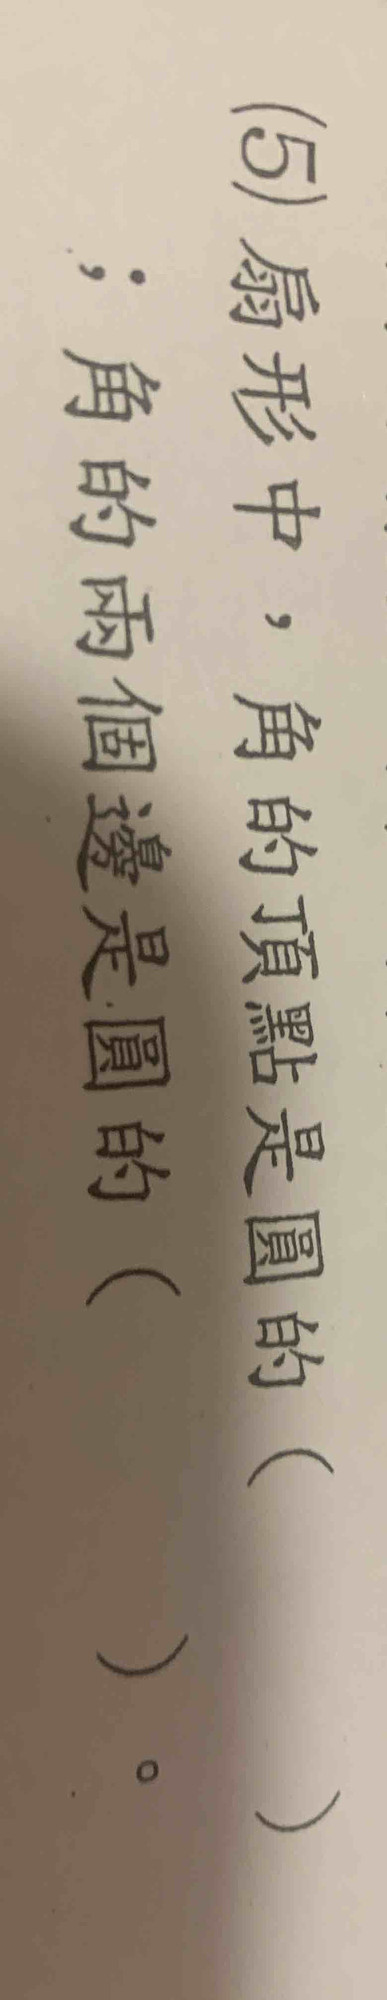 (5) 扇形中，角的頂點是圓的（　　　）
；角的兩個邊是圓的（　　　）。